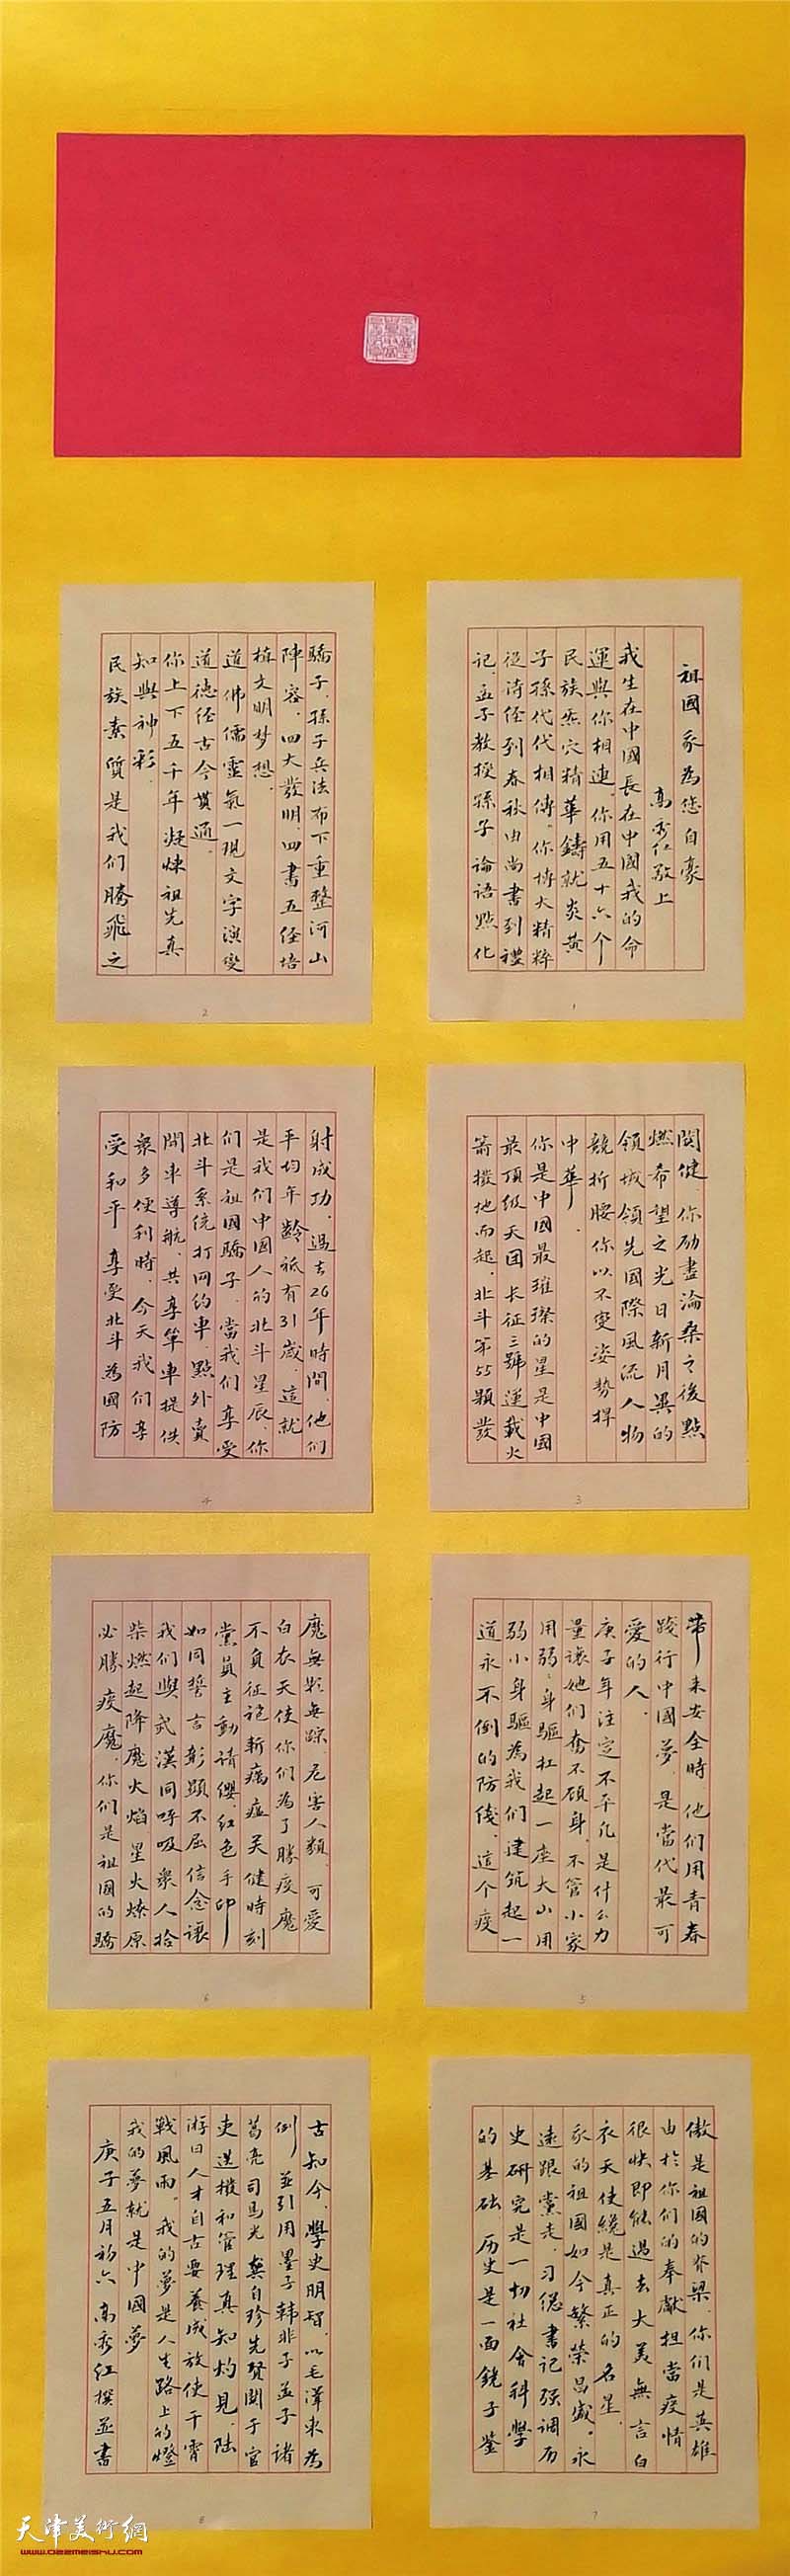 祖國我為您自豪
高秀红敬上
我生在中國長在中國我的命
運與你相連。你用五十六个
民族炁穴精華鑄就炎黄
子孫代代相傳。你博大精粹
從诗经到春秋由尚書到禮
記。孟子教授孫子論语點化
1
驕子。孫子兵法布下重整河山
陣容。四大發明。四書五经培
植文明梦想。
道佛儒靈氣一現文字演變
道德经古今贯通。
你上下五千年凝煉祖先真
知與神彩。
民族素質是我们騰飛之
2
関健。你励盡淪桑之後點
燃希望之光日新月異的
領域領先國際風流人物
競折腰你以不变姿势捍
中華。
你是中國最璀璨的星是中國
最顶级天团长征三號運载火
箭拨地而起。北斗第55顆發
3
射成功。過去26年時間。他们
平均年齡祗有31歲。這就
是我们中國人的北斗星辰。你
们是祖国驕子。當我们享受
北斗系统打网约車。點外賣
開車導航。共享單車提供
衆多便利時。今天我们享
受和平 享受北斗為國防
4
带来安全時 他们用青春
踐行中國夢。是當代最可
愛的人。
庚子年注定不平凡是什么力
量讓她们奮不顾身。不管小家
用弱小身軀扛起一座大山用
弱小身驅為我们建筑起一
道永不倒的防线。這个疫
5
魔無影無踪。危害人類。可爱
白衣天使你们為了勝疫魔
不負征袍斬癘瘟关健時刻
黨員主動请缨。红色手印
如同誓言彰顯不屈信念讓
我们與武漢同呼吸衆人拾
柴燃起降魔火焰星火燎原
必勝疫魔。你们是祖國的驕
6
傲是祖國的脊梁。你们是英雄
由於你们的奉獻担當疫情
很快即能過去大美無言白
衣天使纔是真正的名星。
我的祖國如今繁荣昌盛。永
遠跟黨走。习總書记强调历
史研究是一切社会科學
的基础 历史是一面镜子鉴
7
古知今。學史明智。以毛澤東為
例 並引用墨子韓非子孟子诸
葛亮司馬光龔自珍先賢関于官
吏选拨和管理真知灼見。陆
游曰人才自古要養成放使干霄
戰風雨。我的夢是人生路上的燈
我的夢就是中國夢
庚子五月初六高秀红撰並書
8
天津美術網
www.022meishu.com